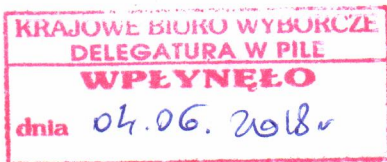 KRAJOWE BIURO WYBORCZE
DELEGATURA W PILE
WPŁYNĘŁO
dnia 04.06. 2018 r